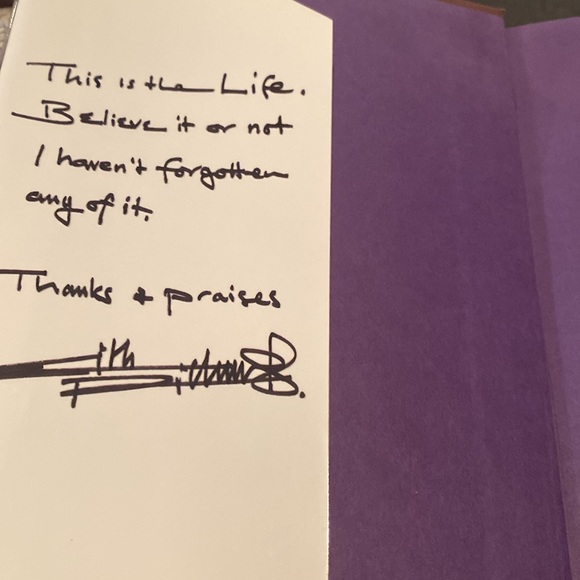 This is the Life.
Believe it or not
I haven't forgotten
any of it.
Thanks + praises